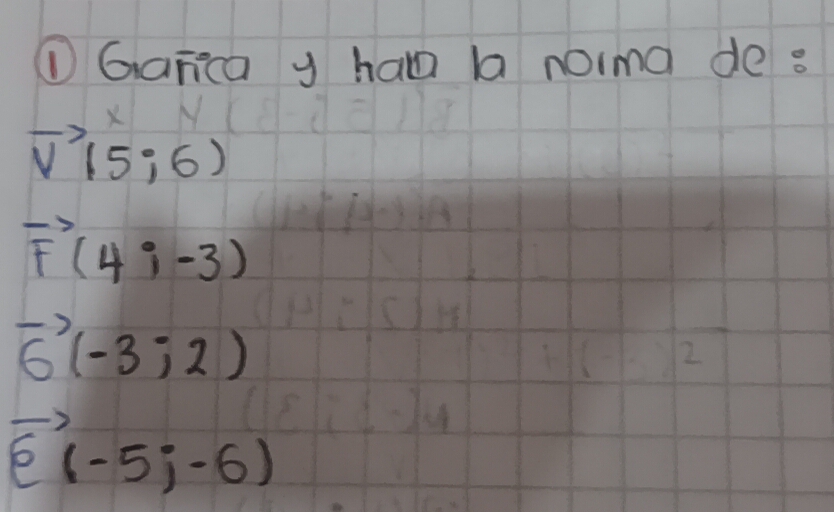 ① Grafica y halla la norma de:
x y
V (5;6)
F (4;-3)
G (-3;2)
E (-5;-6)